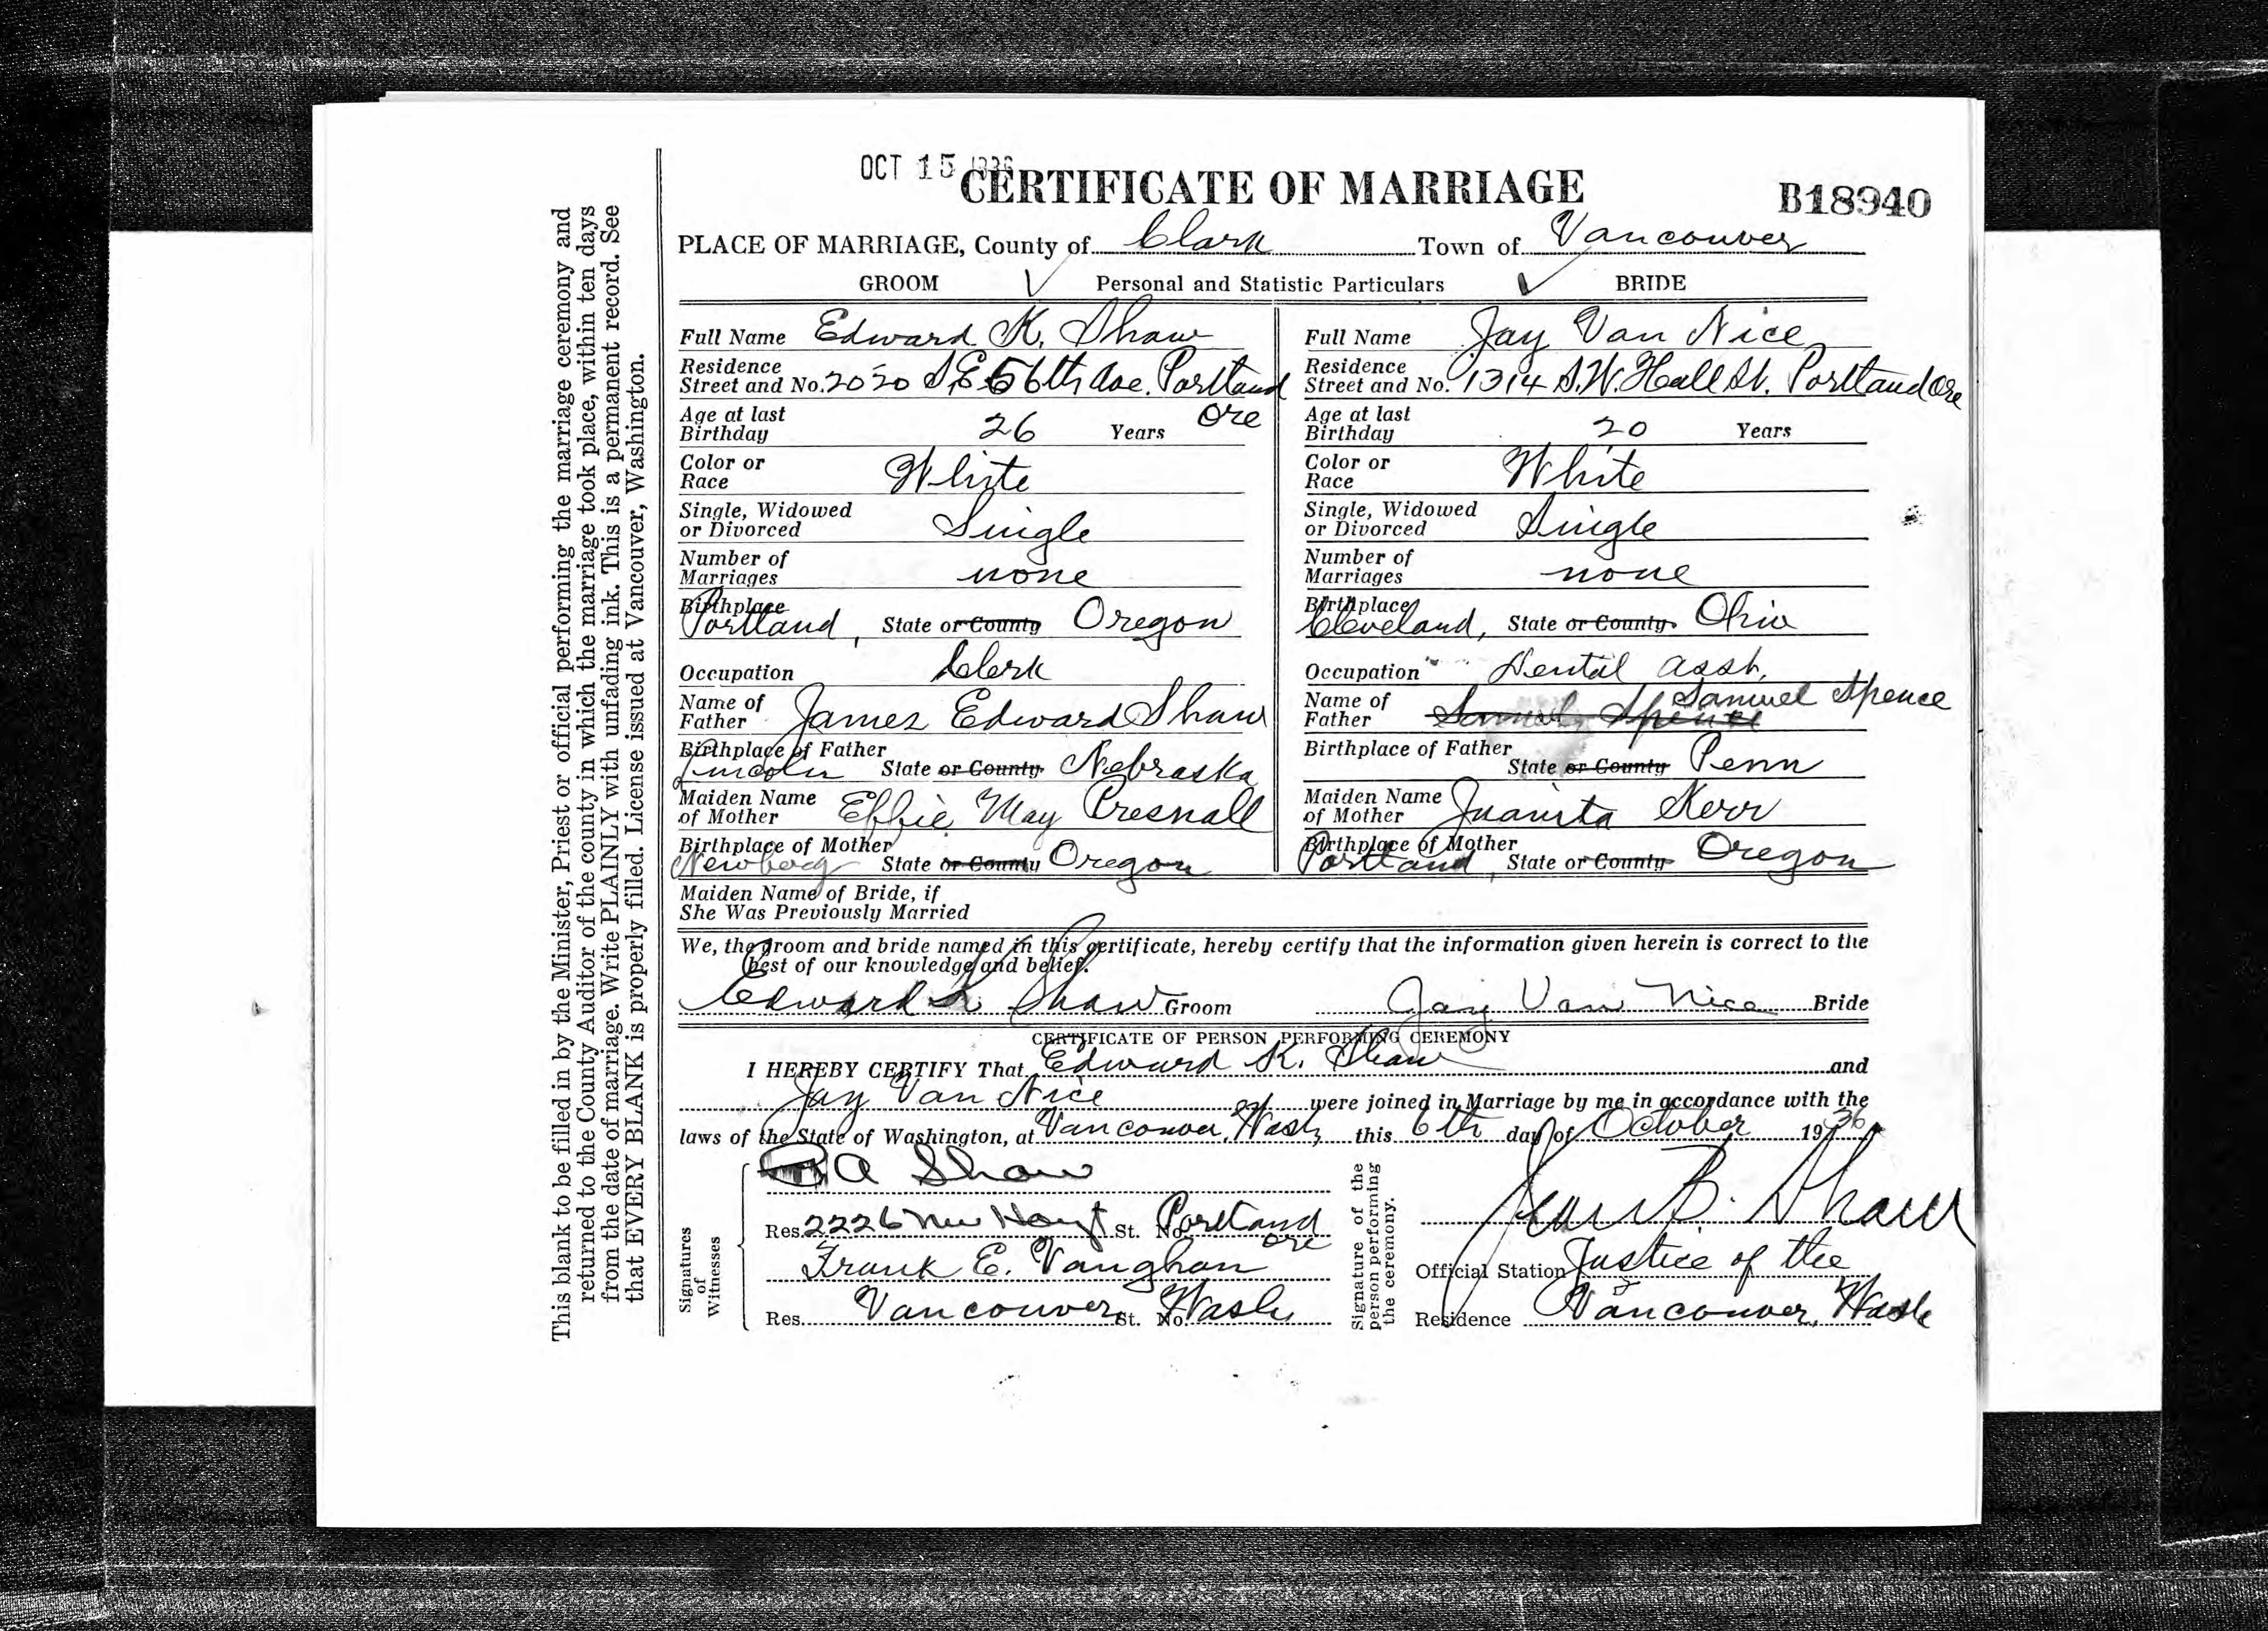 OCT 15 1936
CERTIFICATE OF MARRIAGE
B18940
PLACE OF MARRIAGE, County of Clark Town of Vancouver
GROOM Personal and Statistic Particulars BRIDE
Full Name Edward K. Shaw
Residence
Street and No. 2020 S.E. 56th Ave. Portland
Ore
Age at last
Birthday 26 Years
Color or
Race White
Single, Widowed
or Divorced Single
Number of
Marriages none
Birthplace
Portland, State or County Oregon
Occupation Clerk
Name of
Father James Edward Shaw
Birthplace of Father
Lincoln State or County Nebraska
Maiden Name
of Mother Effie May Presnall
Birthplace of Mother
Newberg State or County Oregon
Full Name Jay Van Nice
Residence
Street and No. 1314 S.W. Hall St. Portland Ore
Age at last
Birthday 20 Years
Color or
Race White
Single, Widowed
or Divorced Single
Number of
Marriages none
Birthplace
Cleveland, State or County Ohio
Occupation Dental asst.
Name of Samuel Spence
Father Samuel Spence
Birthplace of Father
State or County Penn
Maiden Name
of Mother Juanita Kerr
Birthplace of Mother
Portland, State or County Oregon
Maiden Name of Bride, if
She Was Previously Married
We, the groom and bride named in this certificate, hereby certify that the information given herein is correct to the
best of our knowledge and belief.
Edward K Shaw Groom Jay Van Nice Bride
CERTIFICATE OF PERSON PERFORMING CEREMONY
I HEREBY CERTIFY That Edward K. Shaw and
Jay Van Nice were joined in Marriage by me in accordance with the
laws of the State of Washington, at Vancouver, Wash this 6th day of October 1936
Signatures
of
Witnesses
A Shaw
Res. 2226 NW Hoyt St. No. Portland
Ore
Frank E. Vaughan
Res. Vancouver St. No. Wash
Signature of the
person performing
the ceremony.
B. Shaw
Official Station Justice of the
Residence Vancouver, Wash
This blank to be filled in by the Minister, Priest or official performing the marriage ceremony and
returned to the County Auditor of the county in which the marriage took place, within ten days
from the date of marriage. Write PLAINLY with unfading ink. This is a permanent record. See
that EVERY BLANK is properly filled. License issued at Vancouver, Washington.